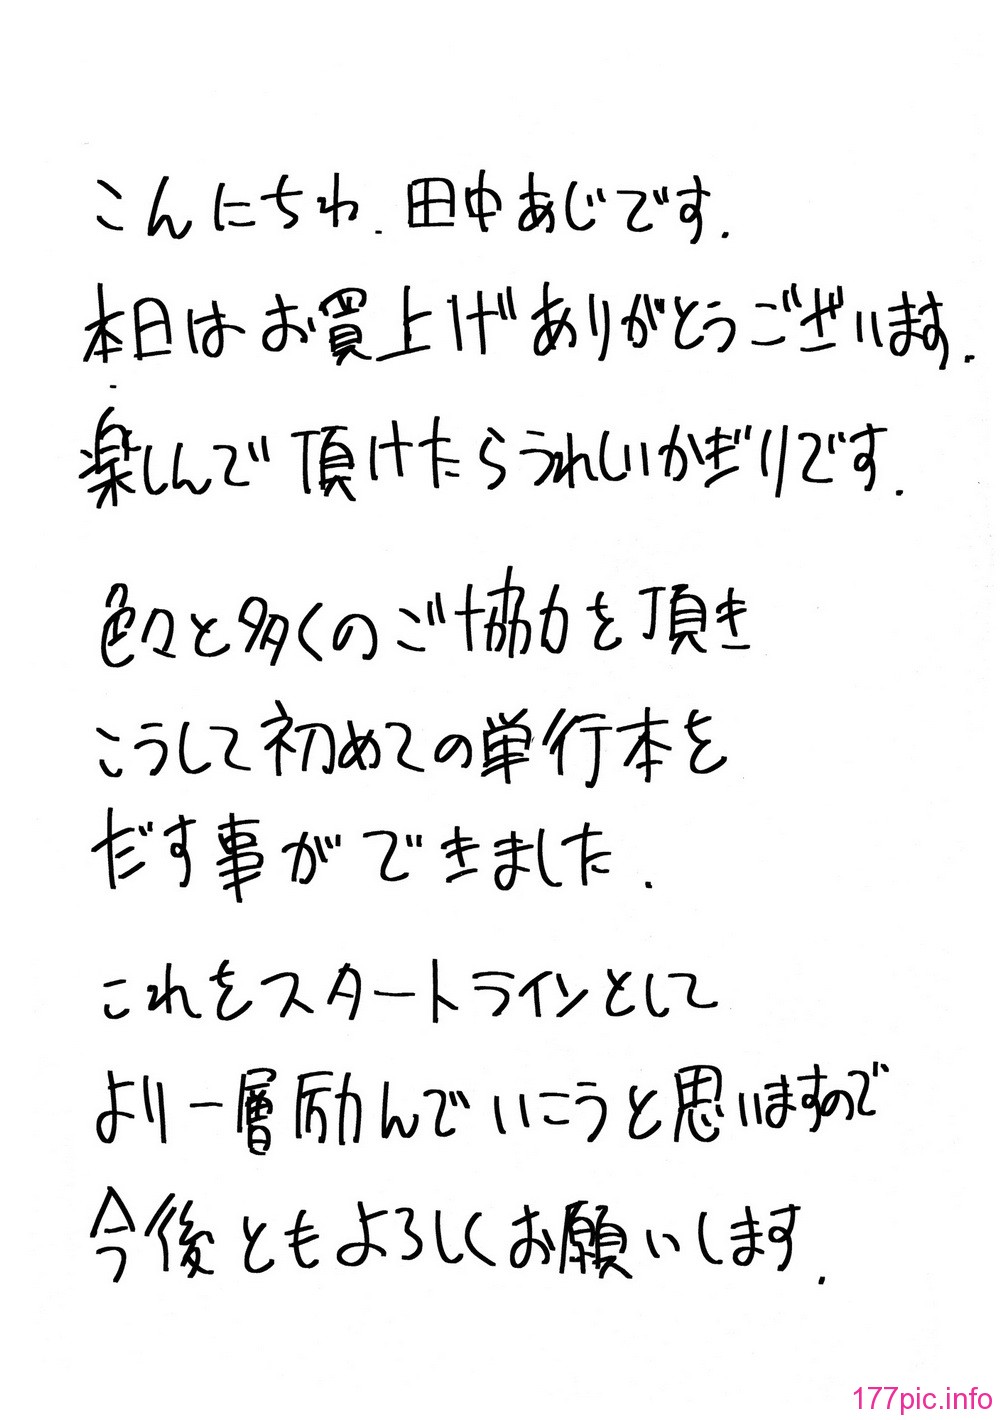 こんにちわ.田中あじです.
本日はお買上げありがとうございます.
楽しんで頂けたらうれしいかぎりです.
色々と多くのご協力を頂き
こうして初めての単行本を
だす事ができました.
これをスタートラインとして
より一層励んでいこうと思いますので
今後ともよろしくお願いします.
177pic.info